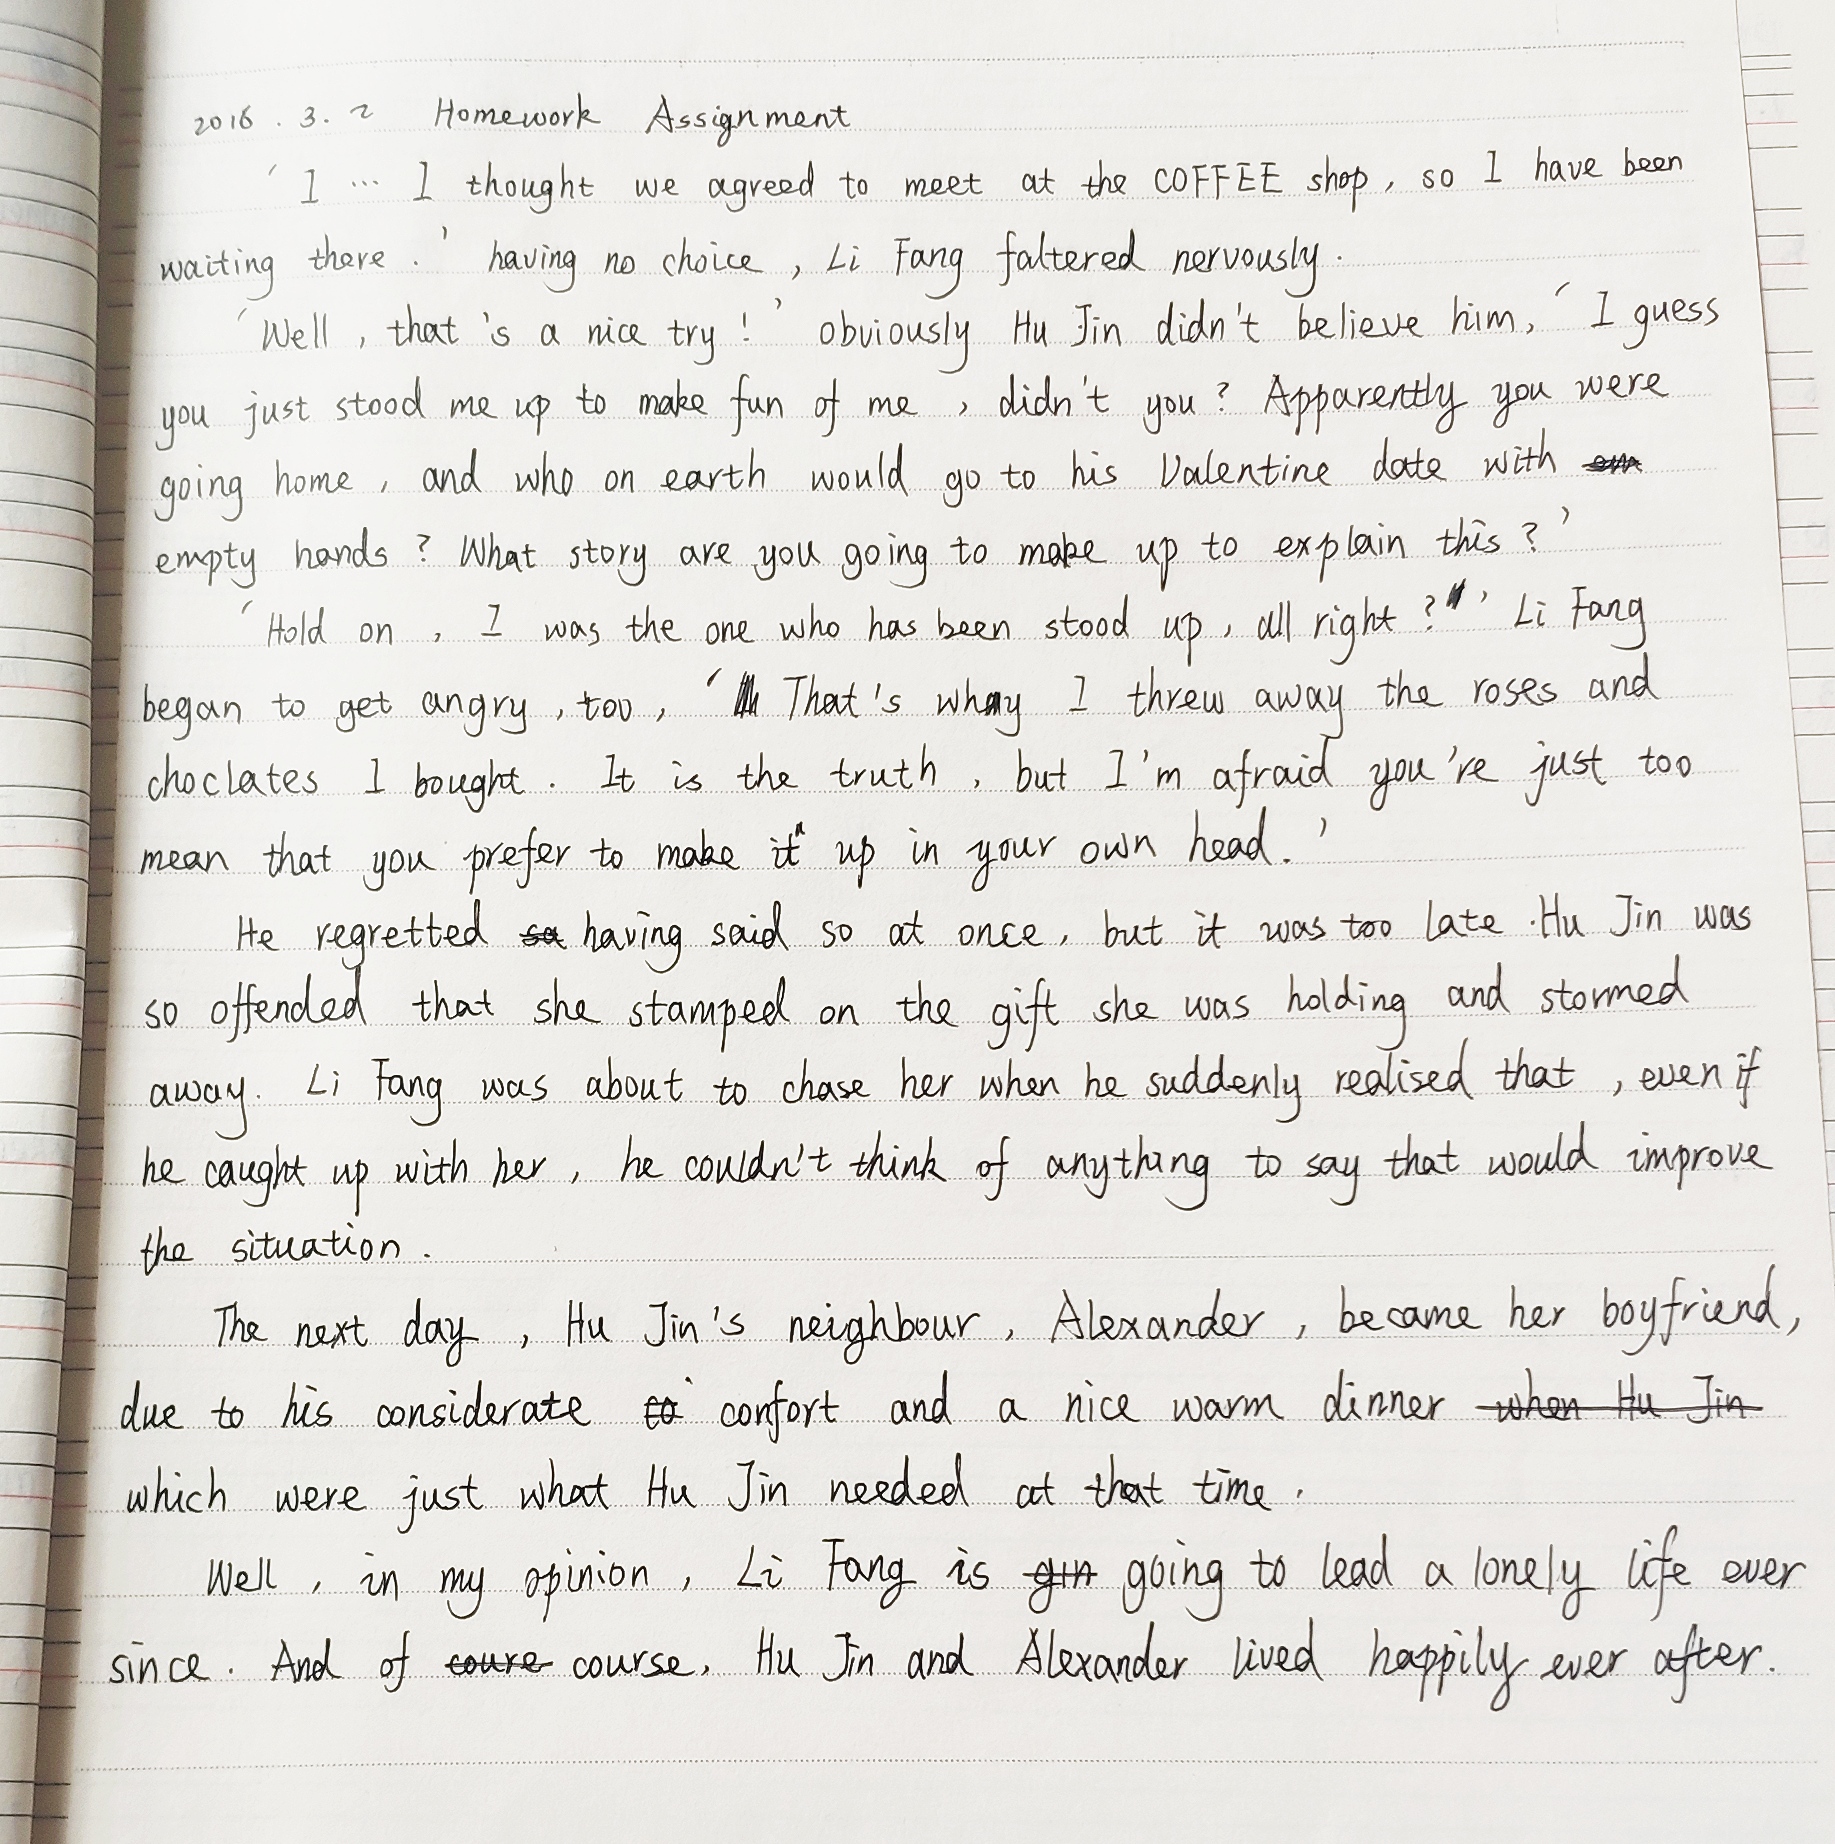 2016.3.2 Homework Assignment
'I ... I thought we agreed to meet at the COFFEE shop, so I have been
waiting there.' having no choice, Li Fang faltered nervously.
'Well, that's a nice try!' obviously Hu Jin didn't believe him, 'I guess
you just stood me up to make fun of me, didn't you? Apparently you were
going home, and who on earth would go to his Valentine date with
empty hands? What story are you going to make up to explain this?'
'Hold on, I was the one who has been stood up, all right?' Li Fang
began to get angry, too, 'That's why I threw away the roses and
choclates I bought. It is the truth, but I'm afraid you're just too
mean that you prefer to make it up in your own head.'
He regretted having said so at once, but it was too late. Hu Jin was
so offended that she stamped on the gift she was holding and stormed
away. Li Fang was about to chase her when he suddenly realised that, even if
he caught up with her, he couldn't think of anything to say that would improve
the situation.
The next day, Hu Jin's neighbour, Alexander, became her boyfriend,
due to his considerate confort and a nice warm dinner
which were just what Hu Jin needed at that time.
Well, in my opinion, Li Fang is going to lead a lonely life ever
since. And of course, Hu Jin and Alexander lived happily ever after.